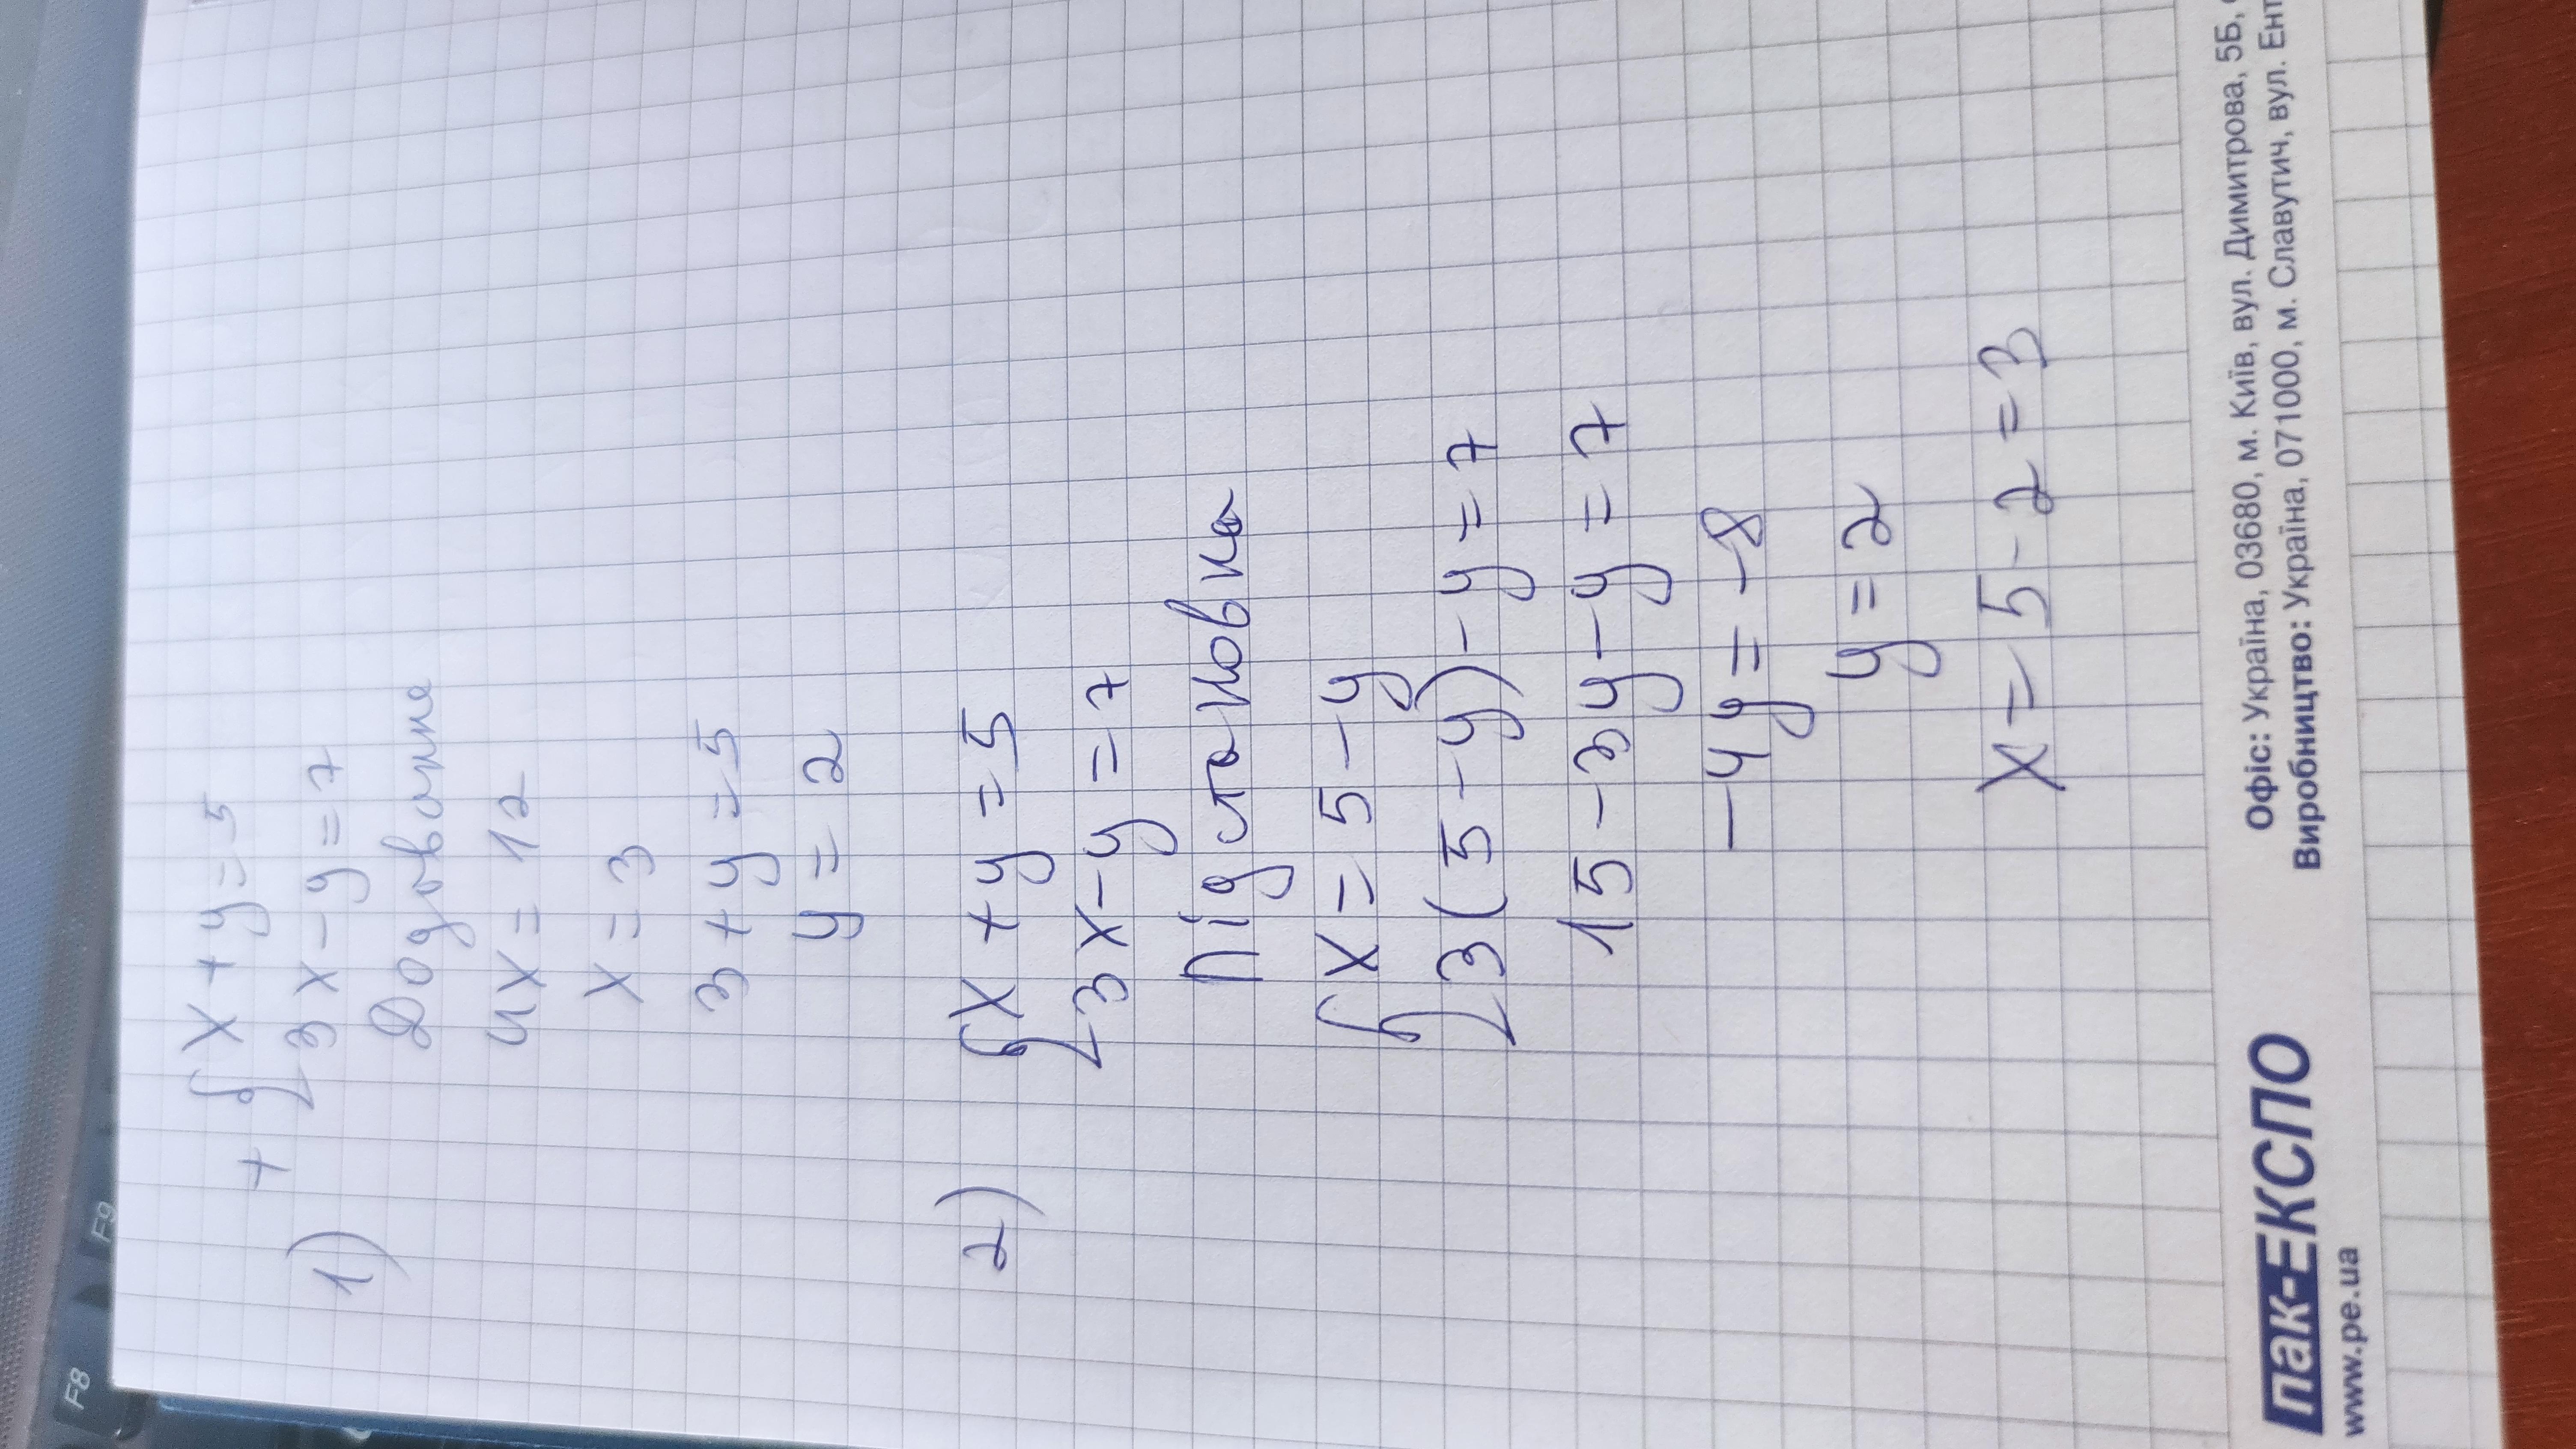 1) + { x + y = 5
3x - y = 7
Додавання
4x = 12
x = 3
3 + y = 5
y = 2
2) { x + y = 5
3x - y = 7
Підстановка
{ x = 5 - y
3(5 - y) - y = 7
15 - 3y - y = 7
-4y = -8
y = 2
x = 5 - 2 = 3
пак-ЕКСПО
www.pe.ua
Офіс: Україна, 03680, м. Київ, вул. Димитрова, 5Б,
Виробництво: Україна, 071000, м. Славутич, вул.
F8
F9